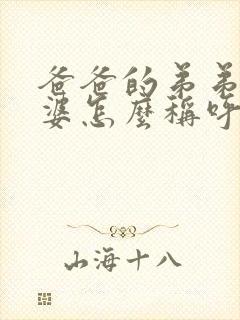 爸爸的弟弟
婆怎麼稱呼
山海十八